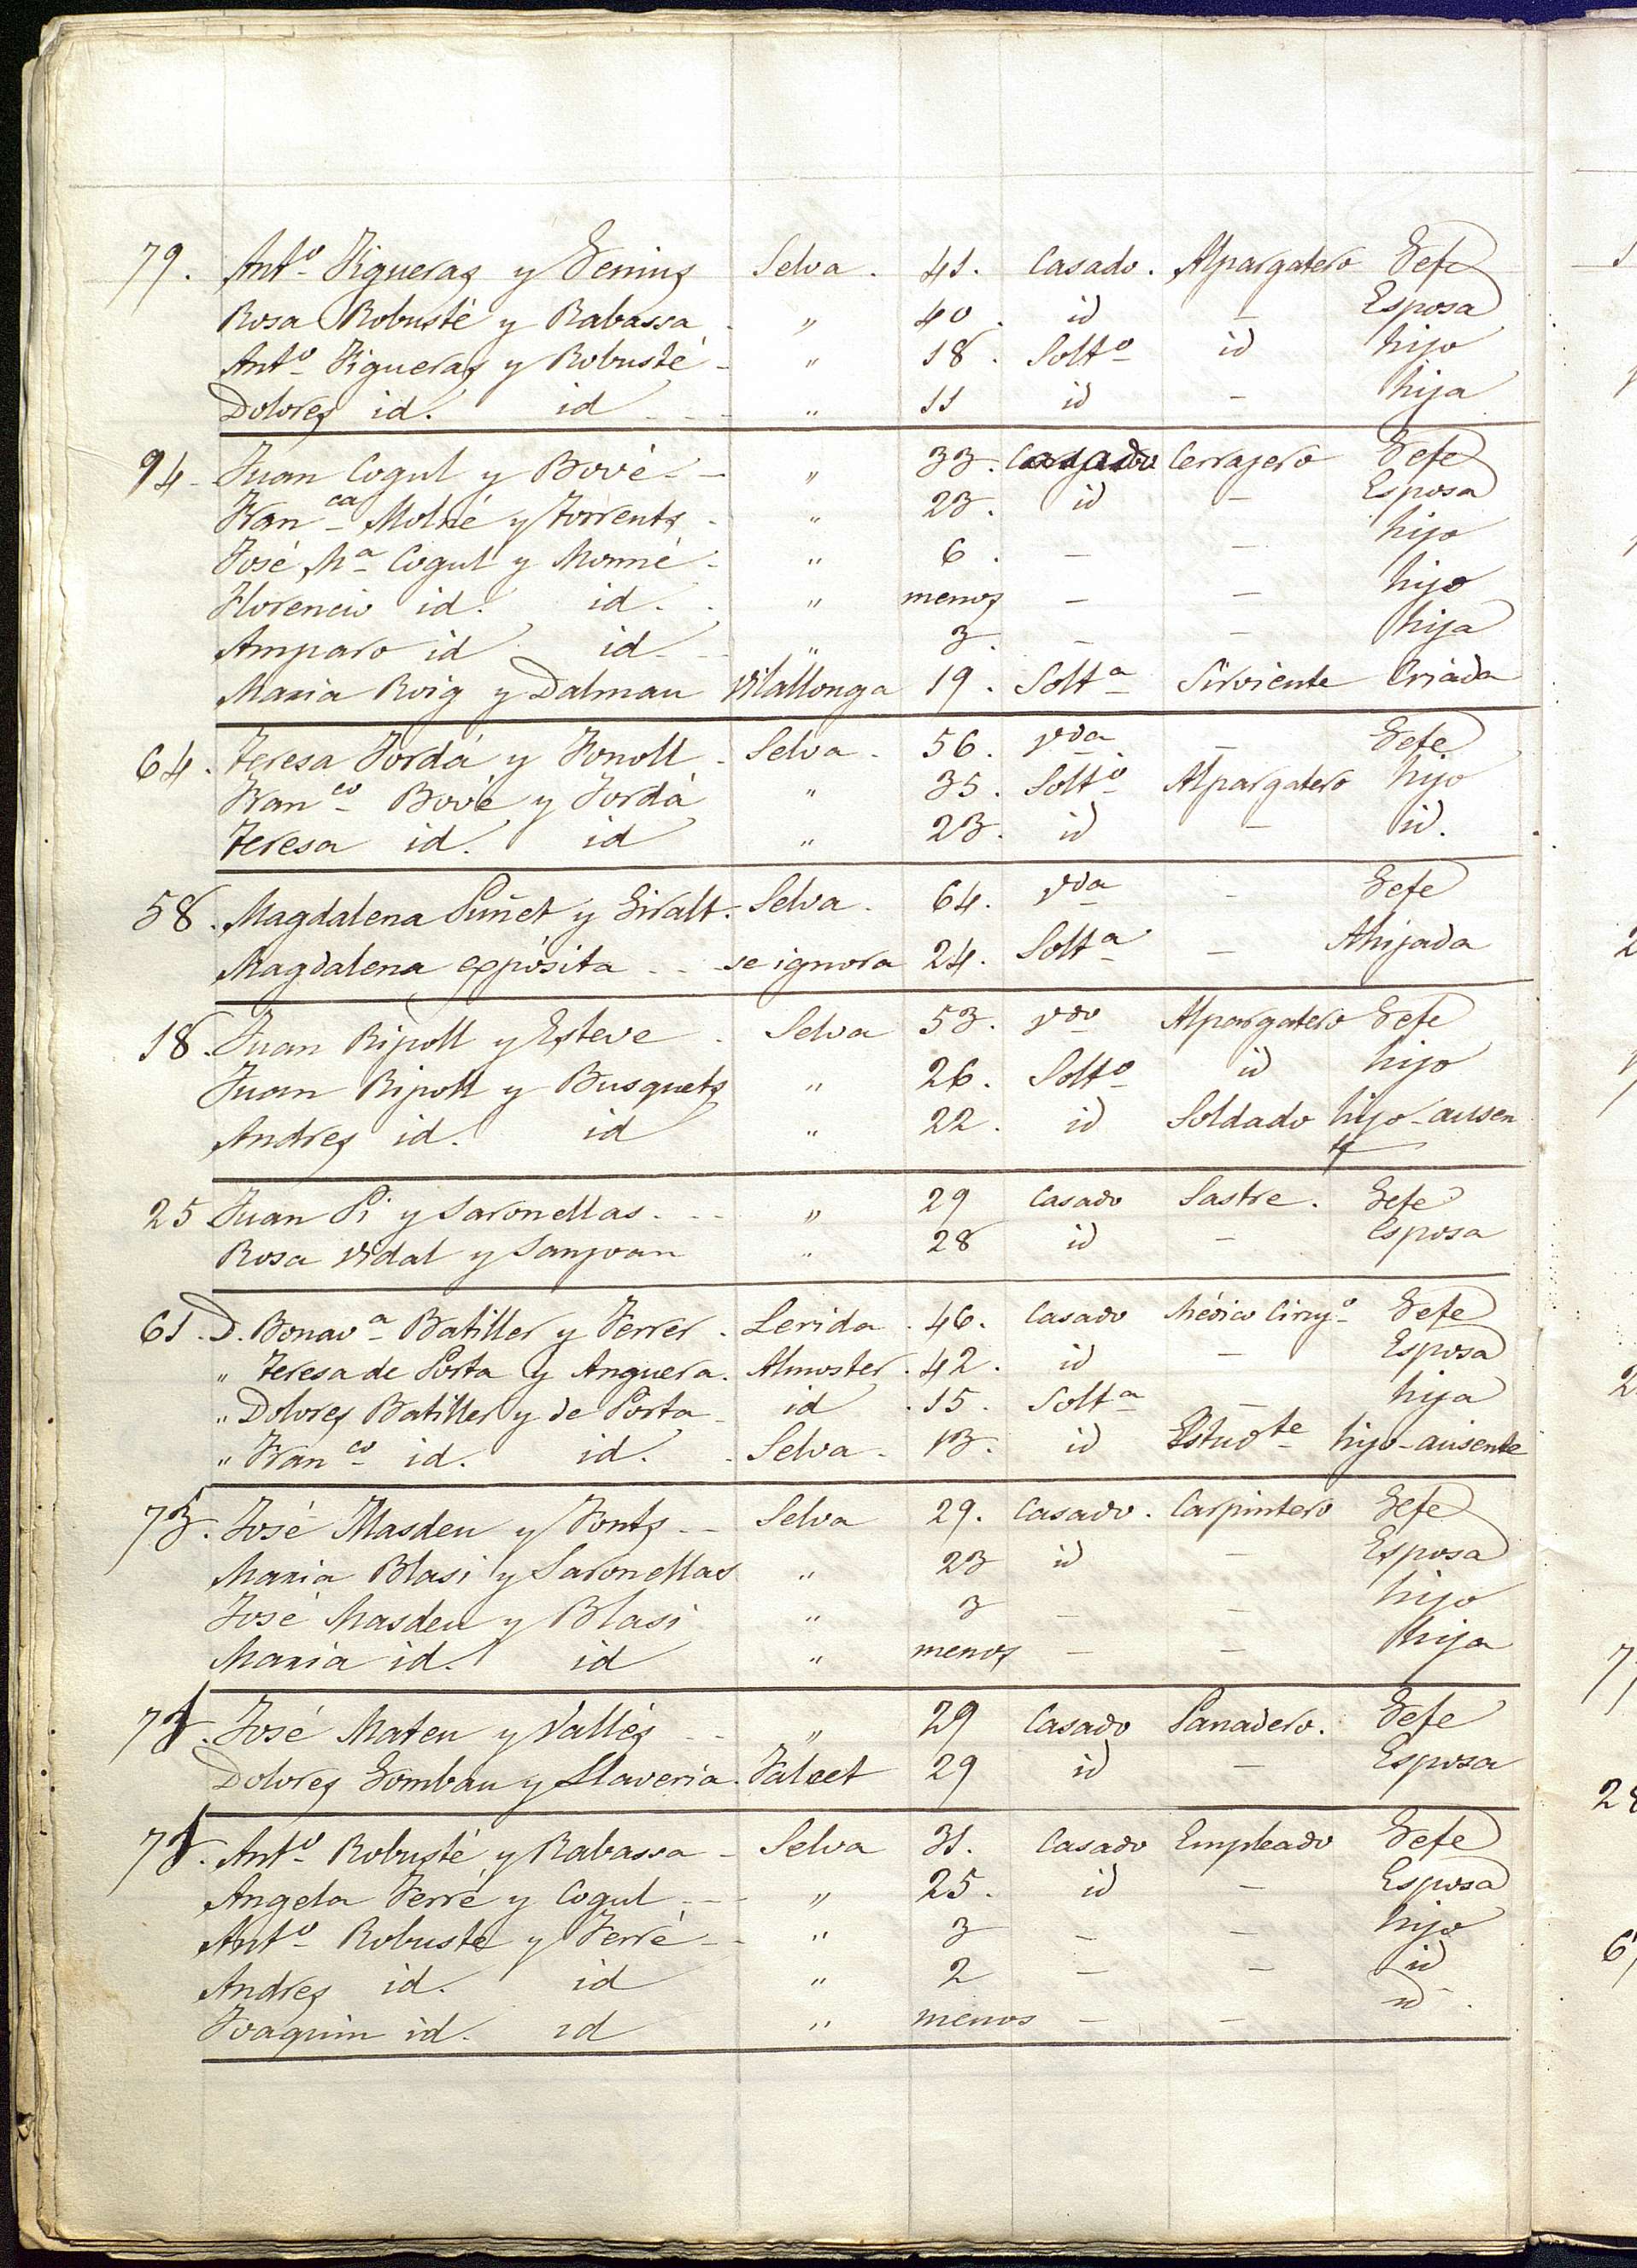 79. Antº Figueras y Genius Selva. 41. Casado. Alpargatero Gefe
Rosa Robusté y Rabassa - " 40. id - Esposa
Antº Figueras y Robusté - " 18. Soltº id hijo
Dolores id. id - - - " 11 id - hija
94 - Juan Cogul y Bové - - " 33. Casado Cerrajero Gefe
Franca Molné y Torrents - " 23. id - Esposa
José Mª Cogul y Monné - " 6. - - hijo
Florencio id. id. - " menos - - hijo
Amparo id id - - " 3. - - hija
Maria Roig y Dalmau Vilallonga 19. Soltª Sirviente Criada
64. Teresa Jordá y Fonoll - Selva. 56. Vda. - Gefe
Franco Bové y Jordá " 35. Soltº Alpargatero hijo
Teresa id. id " 23. id - id.
58. Magdalena Puñet y Giralt. Selva. 64. Vda - Gefe
Magdalena expósita - - se ignora 24. Soltª - Ahijada
18. Juan Ripoll y Esteve - Selva 53. Vdo Alpargatero Gefe
Juan Ripoll y Busquets " 26. Soltº id hijo
Andres id. id " 22. id Soldado hijo-ausen
te
25 Juan Pi y Saronellas. - - " 29 Casado Sastre. Gefe
Rosa Vidal y Sanjoan " 28 id - Esposa
61. D. Bonavª Batiller y Ferrer. Lerida. 46. Casado Médico Cirujº Gefe
" Teresa de Porta y Anguera. Almoster. 42. id - Esposa
" Dolores Batiller y de Porta - id. 15. Soltª - hija
" Franco id. id. - Selva. 13. id Estudte hijo-ausente
73. José Masdeu y Fonts - - Selva 29. Casado. Carpintero Gefe
Maria Blasi y Saronellas " 23 id - Esposa
José Masdeu y Blasi " 3 - - hijo
Maria id. id " menos - - hija
José Mateu y Vallés - - " 29 Casado Panadero. Gefe
Dolores Gombau y Llaveria. Falset 29 id - Esposa
Antº Robusté y Rabassa - Selva 31. Casado Empleado Gefe
Angela Ferré y Cogul - - - " 25. id - Esposa
Antº Robusté y Ferré - - " 3 - - hijo
Andres id. id " 2 - - id
Joaquin id. id " menos - - id.